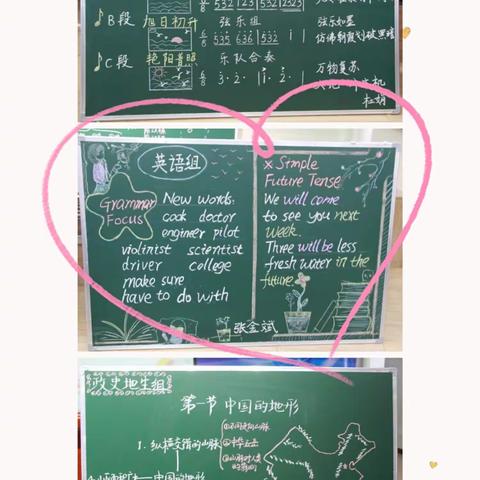 532 123 532 2323
B段 旭日初升 弦乐组 弦乐如墨
6/8 535 636 535 i i 仿佛朝霞划破黑暗
C段 艳阳普照 乐队合奏
6/8 3· 2· i· i· 3· 2· 万物复苏
杜娟
英语组
Grammar
Focus
New words:
cook doctor
engineer pilot
violinist scientist
driver college
make sure
have to do with
× Simple
Future Tense
We will come
to see you next
week.
Three will be less
fresh water in the
future.
张金斌
政史地生组
第一节 中国的地形
1. 纵横交错的山脉
中国的地形